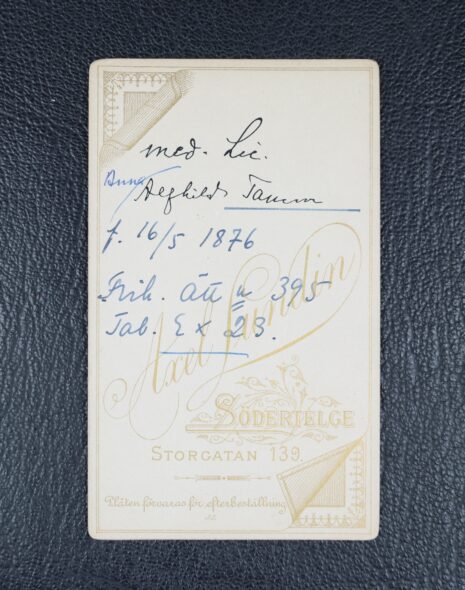 med. Lic.
Anna
Alfhild Tamm
f. 16/5 1876
Frih. ätt n 395
Tab. E x 23.
Axel Lundin
SÖDERTELGE
STORGATAN 139
Plåten förvaras för efterbeställning